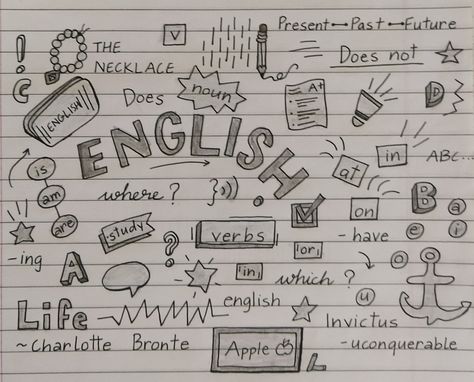 Present Past Future
THE
NECKLACE
V
Does not
!
C
D
Does
noun
A+
D
ENGLISH
ENGLISH
is
am
are
at
in
ABC...
where?
})))
B
a
study
verbs
on
- have
e
i
?
- ing
A
or
in
which?
o
u
english
Life
Invictus
~Charlotte Bronte
Apple
- uconquerable
L